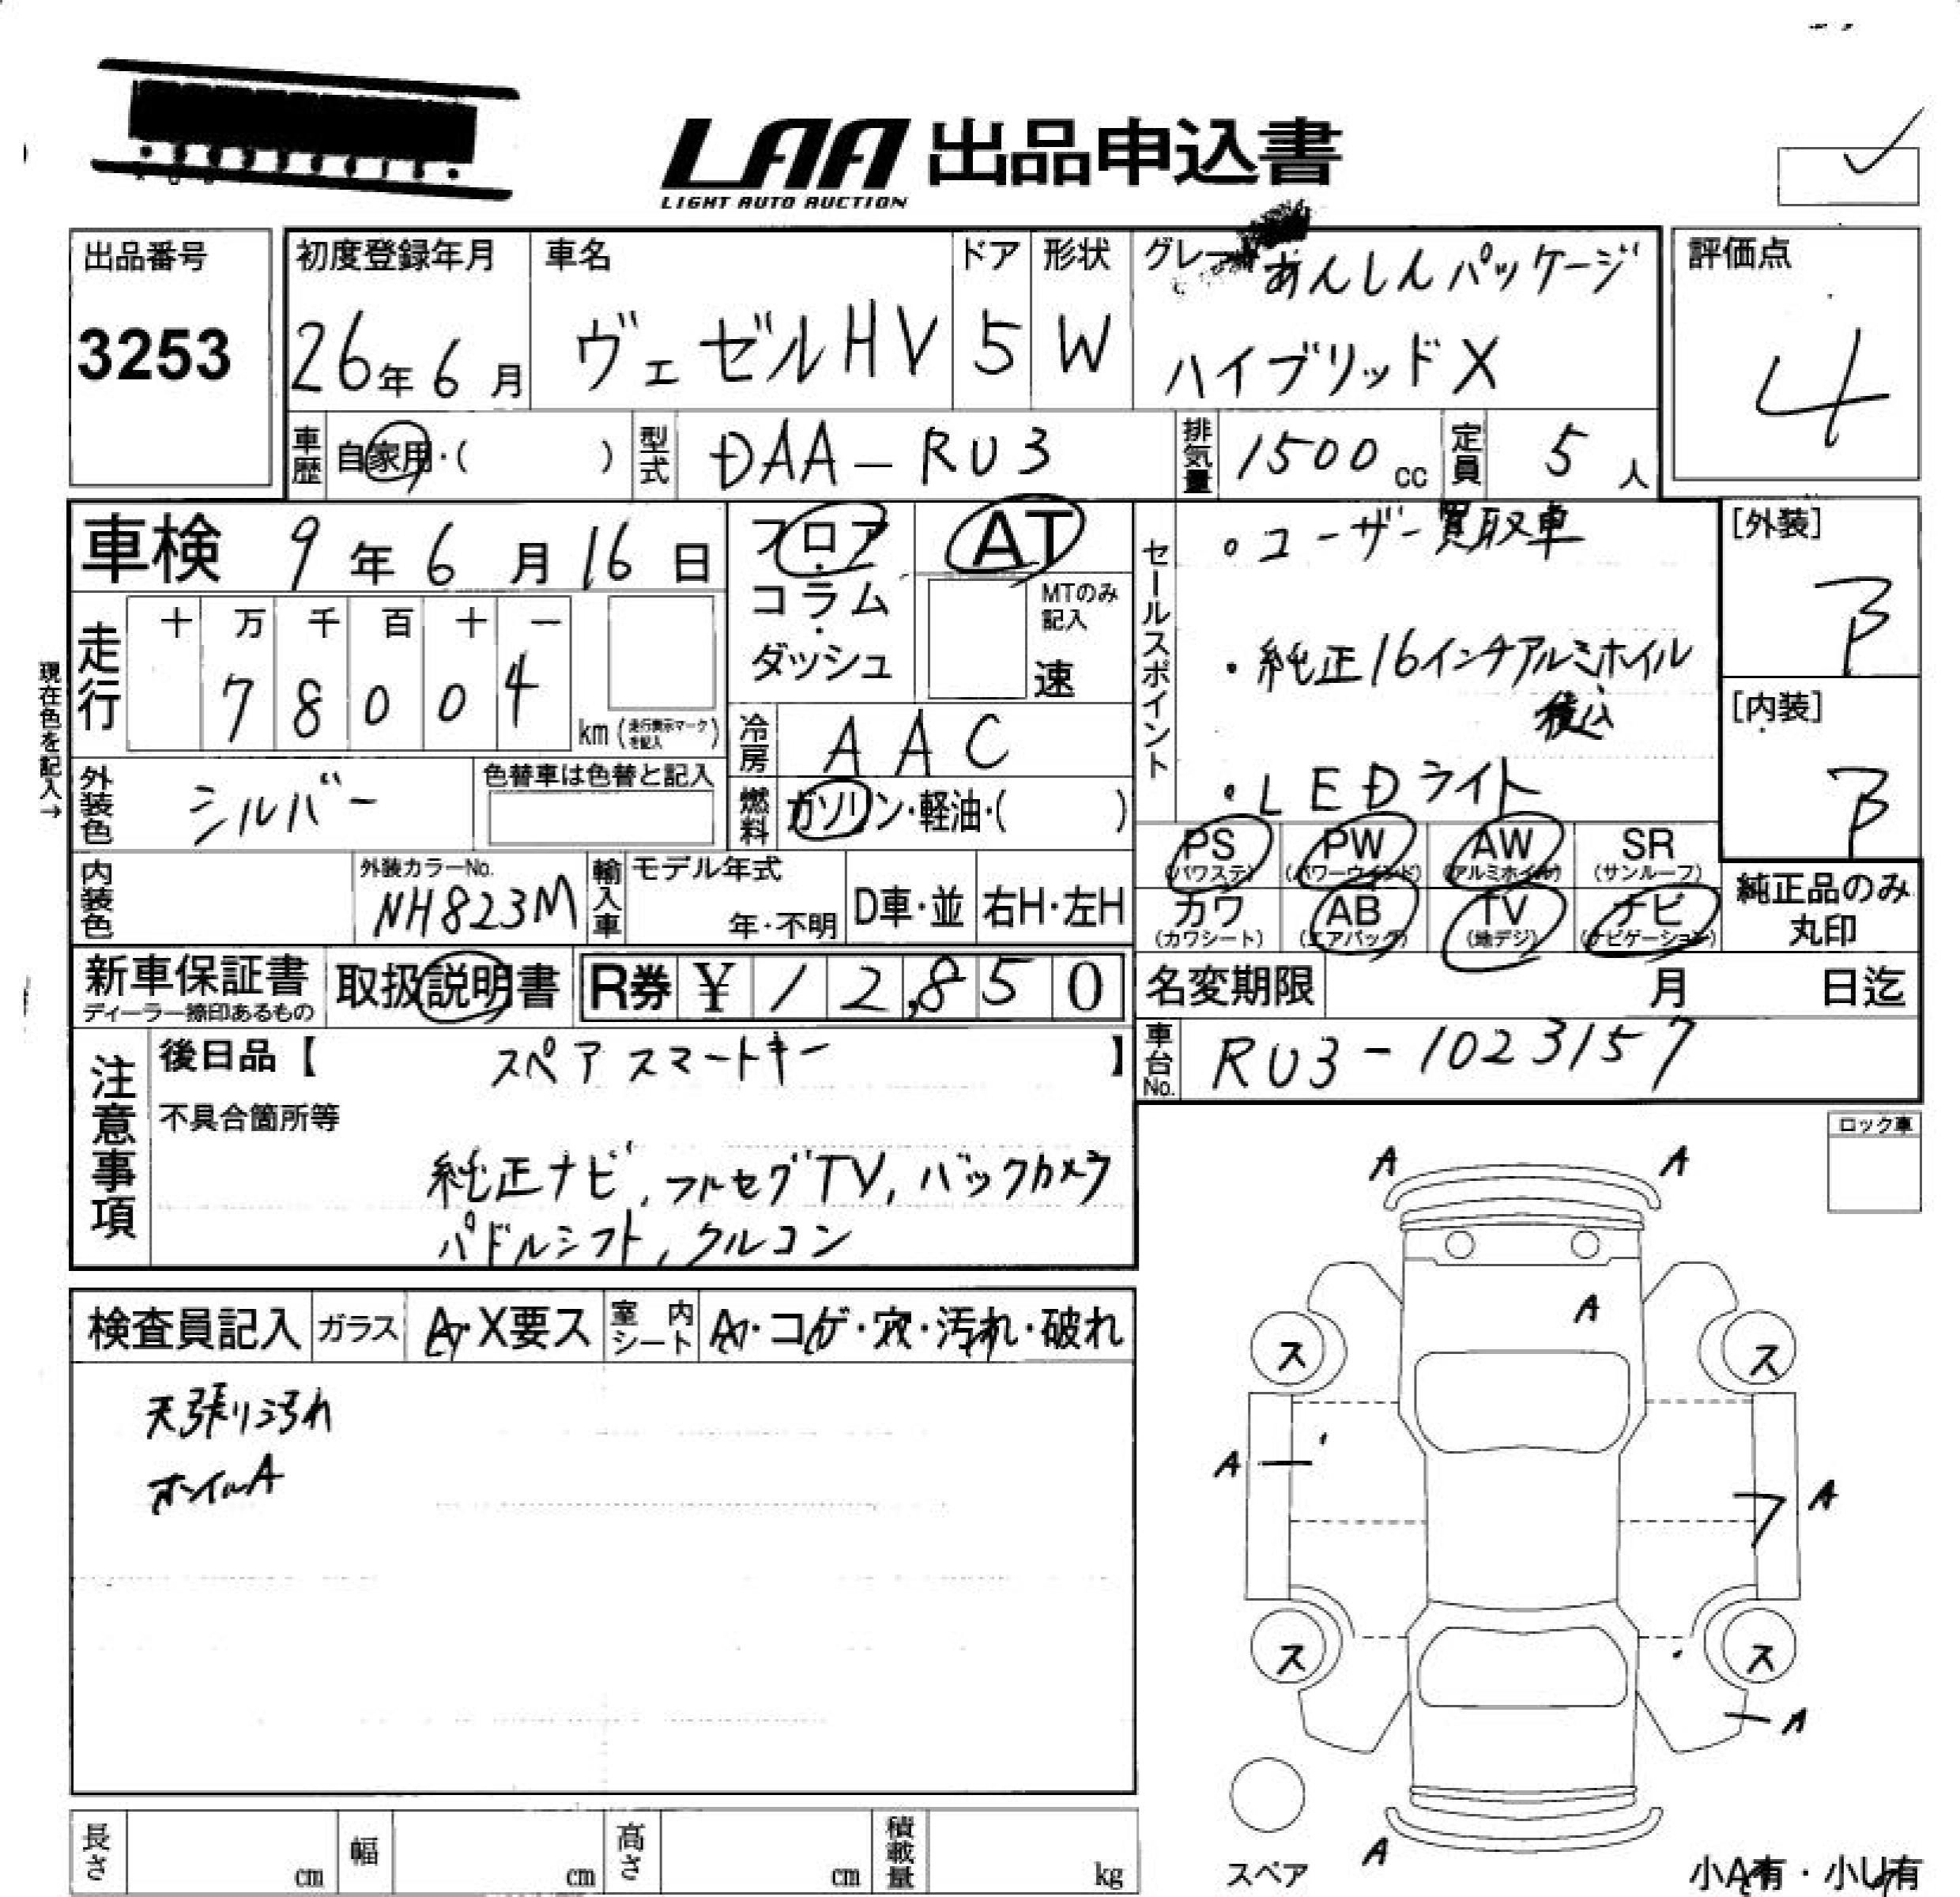 LAA 出品申込書
LIGHT AUTO AUCTION
出品番号
3253
初度登録年月
26年6月
車名
ヴェゼルHV
ドア
5
形状
W
グレー
あんしんパッケージ
ハイブリッドX
評価点
4
車歴 自家用・( )
型式 DAA-RU3
排気量 1500cc
定員 5人
車検 9年6月16日
フロア・コラム・ダッシュ
AT
MTのみ記入
速
現在色を記入→
走行
十 万 千 百 十 一
7 8 0 0 4
km(走行表示マークを記入)
冷房 AAC
燃料 ガソリン・軽油・( )
外装色 シルバー
色替車は色替と記入
内装色
外装カラーNo.
NH823M
輸入車
モデル年式
年・不明
D車・並
右H・左H
セールスポイント
・ユーザー買取車
・純正16インチアルミホイル
積込
・LEDライト
[外装]
B
[内装]
B
PS (パワステ)
PW (パワーウインド)
AW (アルミホイル)
SR (サンルーフ)
カワ (カワシート)
AB (エアバック)
TV (地デジ)
ナビ (ナビゲーション)
純正品のみ丸印
新車保証書
ディーラー捺印あるもの
取扱説明書
R券 ¥12,850
名変期限 月 日迄
車台No. RU3-1023157
注意事項
後日品【 スペアスマートキー 】
不具合箇所等
純正ナビ,フルセグTV,バックカメラ
パドルシフト,クルコン
検査員記入
ガラス
A・X要ス
室内シート
A・コゲ・穴・汚れ・破れ
天張り汚れ
ホイルA
ロック車
A A
A
ス ス
A
A
ス ス
A
A
スペア
小A有・小U有
長さ cm
幅 cm
高さ cm
積載量 kg